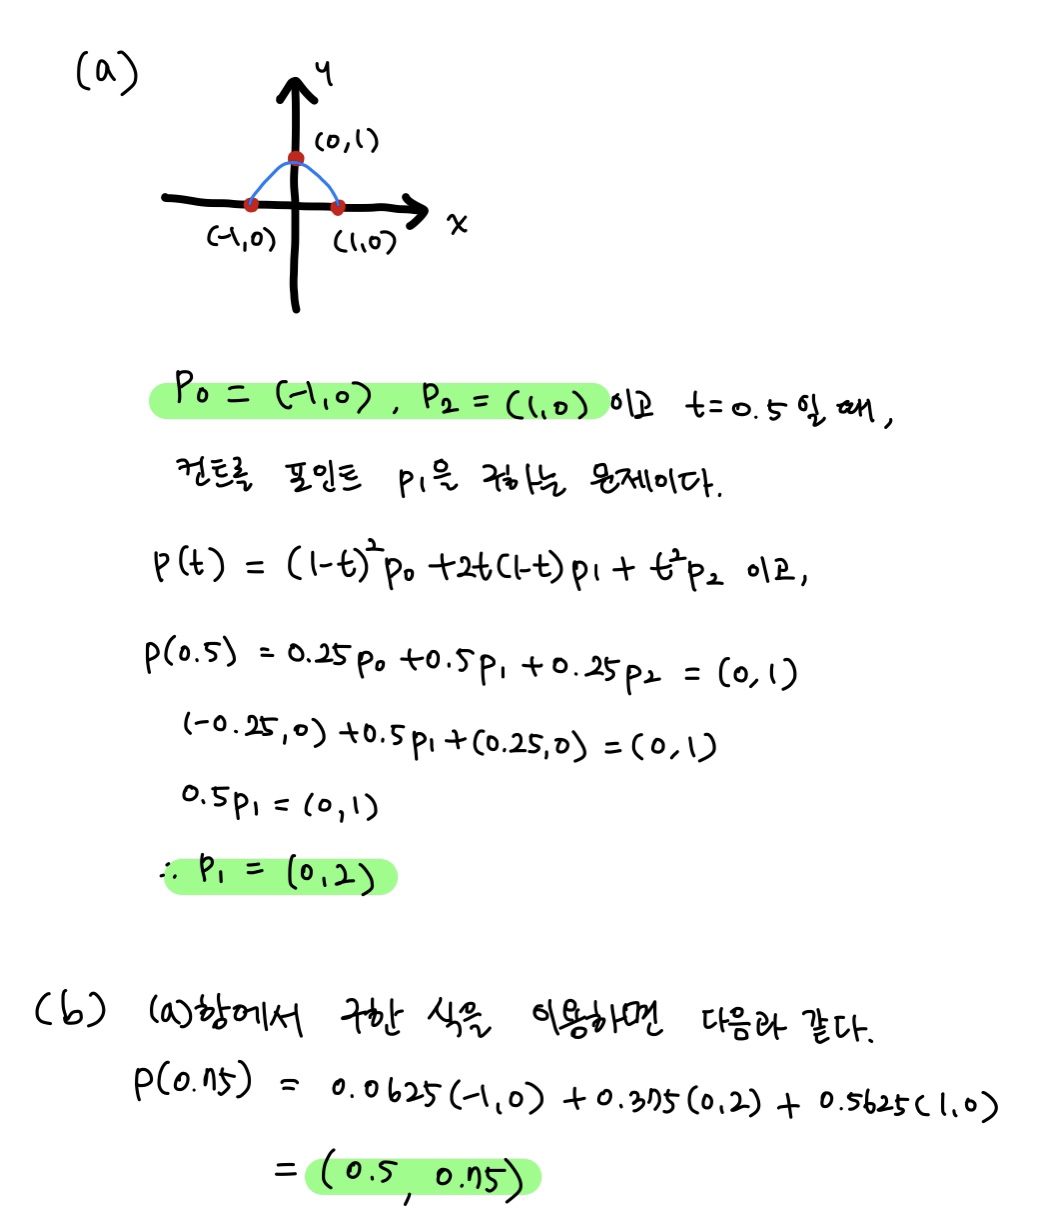 (a)
y
(0,1)
x
(-1,0) (1,0)
P₀ = (-1,0), P₂ = (1,0) 이고 t=0.5 일 때,
컨트롤 포인트 p₁을 구하는 문제이다.
p(t) = (1-t)²p₀ +2t(1-t)p₁ + t²p₂ 이고,
p(0.5) = 0.25p₀ +0.5p₁ +0.25p₂ = (0,1)
(-0.25,0) +0.5p₁ +(0.25,0) = (0,1)
0.5p₁ = (0,1)
∴ P₁ = (0,2)
(b) (a)항에서 구한 식을 이용하면 다음과 같다.
p(0.75) = 0.0625(-1,0) + 0.375(0,2) + 0.5625(1,0)
= (0.5, 0.75)